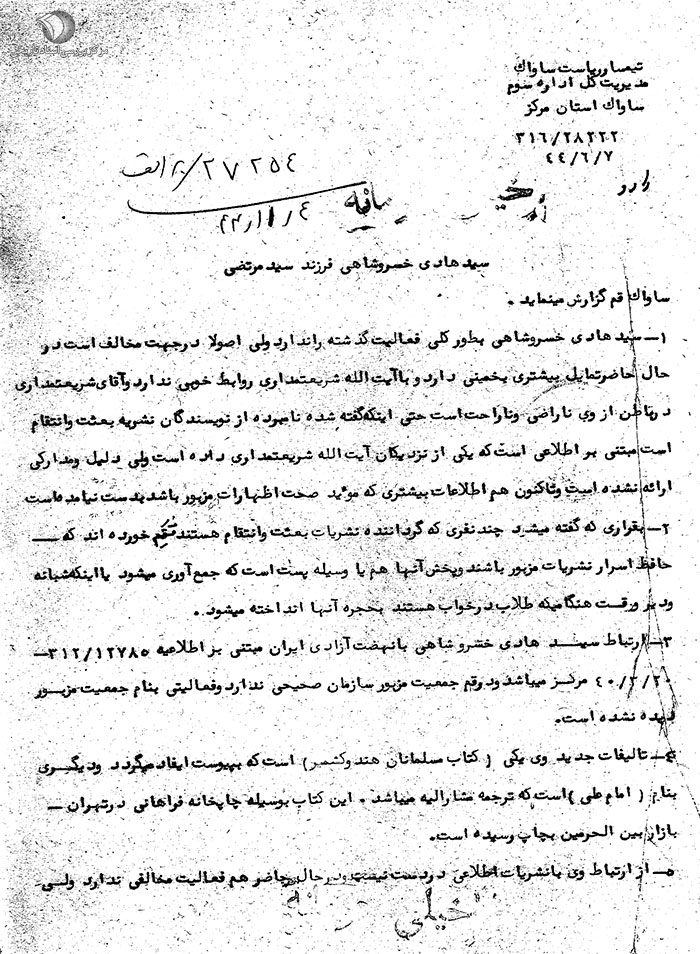 مرکز بررسی اسناد تاریخی
تیمسار ریاست ساواک
مدیریت کل اداره سوم
ساواک استان مرکز
۳۱۶/۲۸۲۲۲
۴۴/۶/۷
۲۷۲۵۴/۲۰الف
۴۴/۱۱/۴
سید هادی خسروشاهی فرزند سید مرتضی
ساواک قم گزارش مینماید .
۱ـ سید هادی خسروشاهی بطور کلی فعالیت گذشته را ندارد ولی اصولا درجهت مخالف است در
حال حاضر تمایل بیشتری بخمینی دارد و با آیت الله شریعتمداری روابط خوبی ندارد وآقای شریعتمداری
درباطن از وی ناراضی وناراحت است حتی اینکه گفته شده نامبرده از نویسندگان نشریه بعثت وانتقام
است مبتنی بر اطلاعی است که یکی از نزدیکان آیت الله شریعتمداری داده است ولی دلیل ومدارکی
ارائه نشده است وتاکنون هم اطلاعات بیشتری که موئید صحت اظهارات مزبور باشد بدست نیامده است
۲ـ بقراری که گفته میشود چند نفری که گرداننده نشریات بعثت وانتقام هستند قسم خورده اند که ـــ
حافظ اسرار نشریات مزبور باشند وپخش آنها هم با وسیله پست است که جمع آوری میشود یا اینکه شبانه
ودیر وقت هنگامیکه طلاب درخواب هستند بحجره آنها انداخته میشود .
۳ـ ارتباط سید هادی خسروشاهی بانهضت آزادی ایران مبتنی بر اطلاعیه ۳۱۲/۱۲۷۸۵ ـ
۴۰/۳/۲۰ مرکز میباشد ودر قم جمعیت مزبور سازمان صحیحی ندارد وفعالیتی بنام جمعیت مزبور
دیده نشده است.
۴ـ تالیفات جدید وی یکی ( کتاب مسلمانان هند وکشمر) است که بپیوست ایفاد میگردد ودیگری
بنام ( امام علی ) است که ترجمه مشارالیه میباشد . این کتاب بوسیله چاپخانه فراهانی درتهران ــ
بازار بین الحرمین بچاپ رسیده است.
۵ـ از ارتباط وی بانشریات اطلاعی دردست نیست ودر حال حاضر هم فعالیت مخالفی ندارد ولی ـ
خیلی